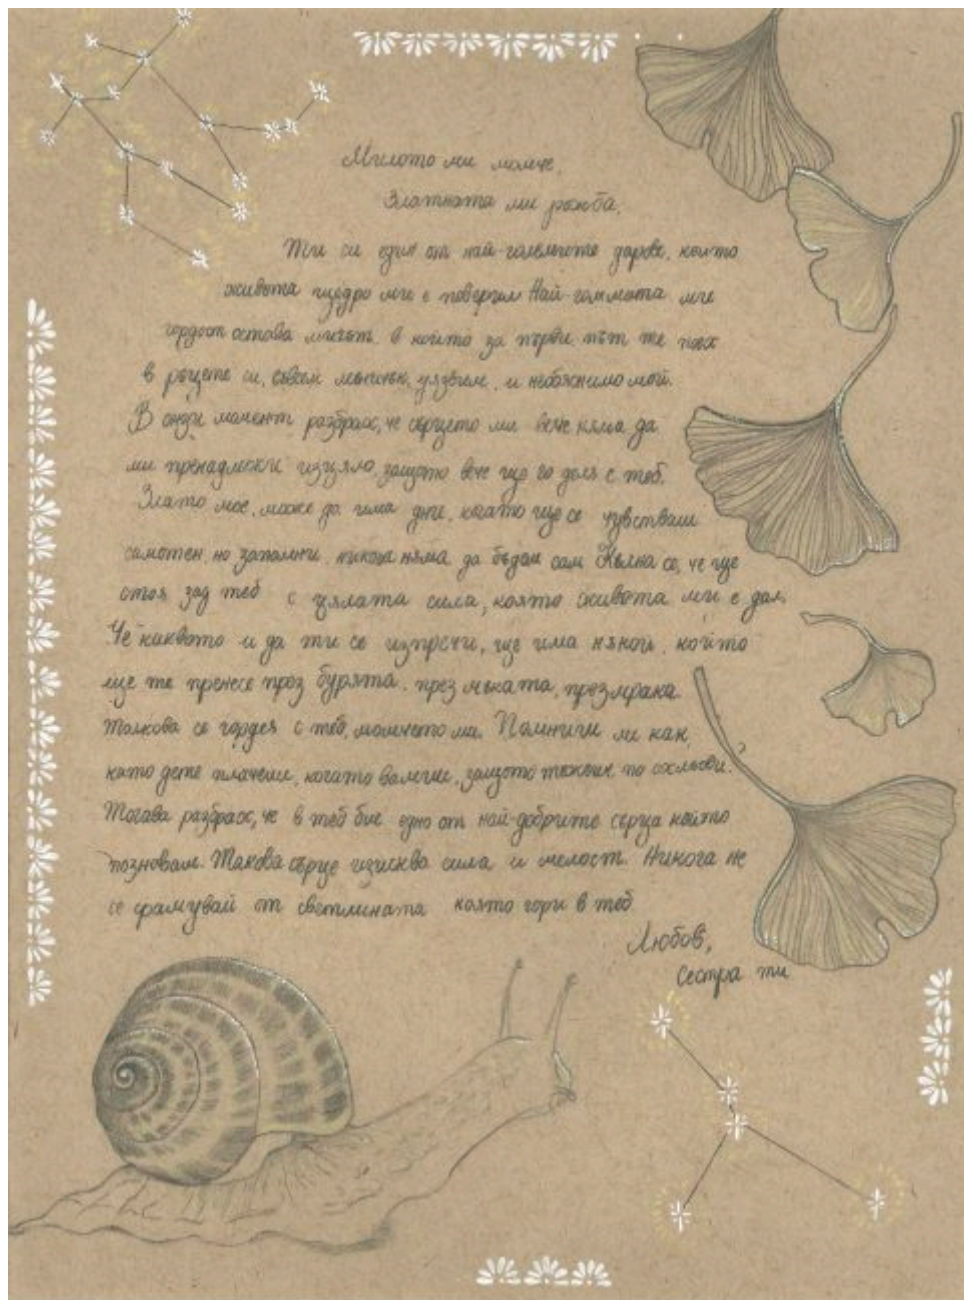 Милото ми момче,
Златната ми рожба,
Ти си един от най-големите дарове, които
живота щедро ми е поверил. Най-голямата ми
гордост остава мигът, в който за първи път те поех
в ръцете си, съвсем мъничък, уязвим, и необяснимо мой.
В онзи момент разбрах, че сърцето ми вече няма да
ми принадлежи изцяло, защото вече ще го деля с теб.
Злато мое, може да има дни, когато ще се чувстваш
самотен, но запомни, никога няма да бъдеш сам. Кълна се, че ще
стоя зад теб с цялата сила, която живота ми е дал.
Че каквото и да ти се изпречи, ще има някой, който
ще те пренесе през бурята, през мъката, през мрака.
Толкова се гордея с теб, момчето ми. Помниш ли как,
като дете плачеше, когато валеше, защото по охлюви.
Тогава разбрах, че в теб бие едно от най-добрите сърца който
познавам. Такова сърце изисква сила и смелост. Никога не
се срамувай от светлината която гори в теб.
Любов,
Сестра ти